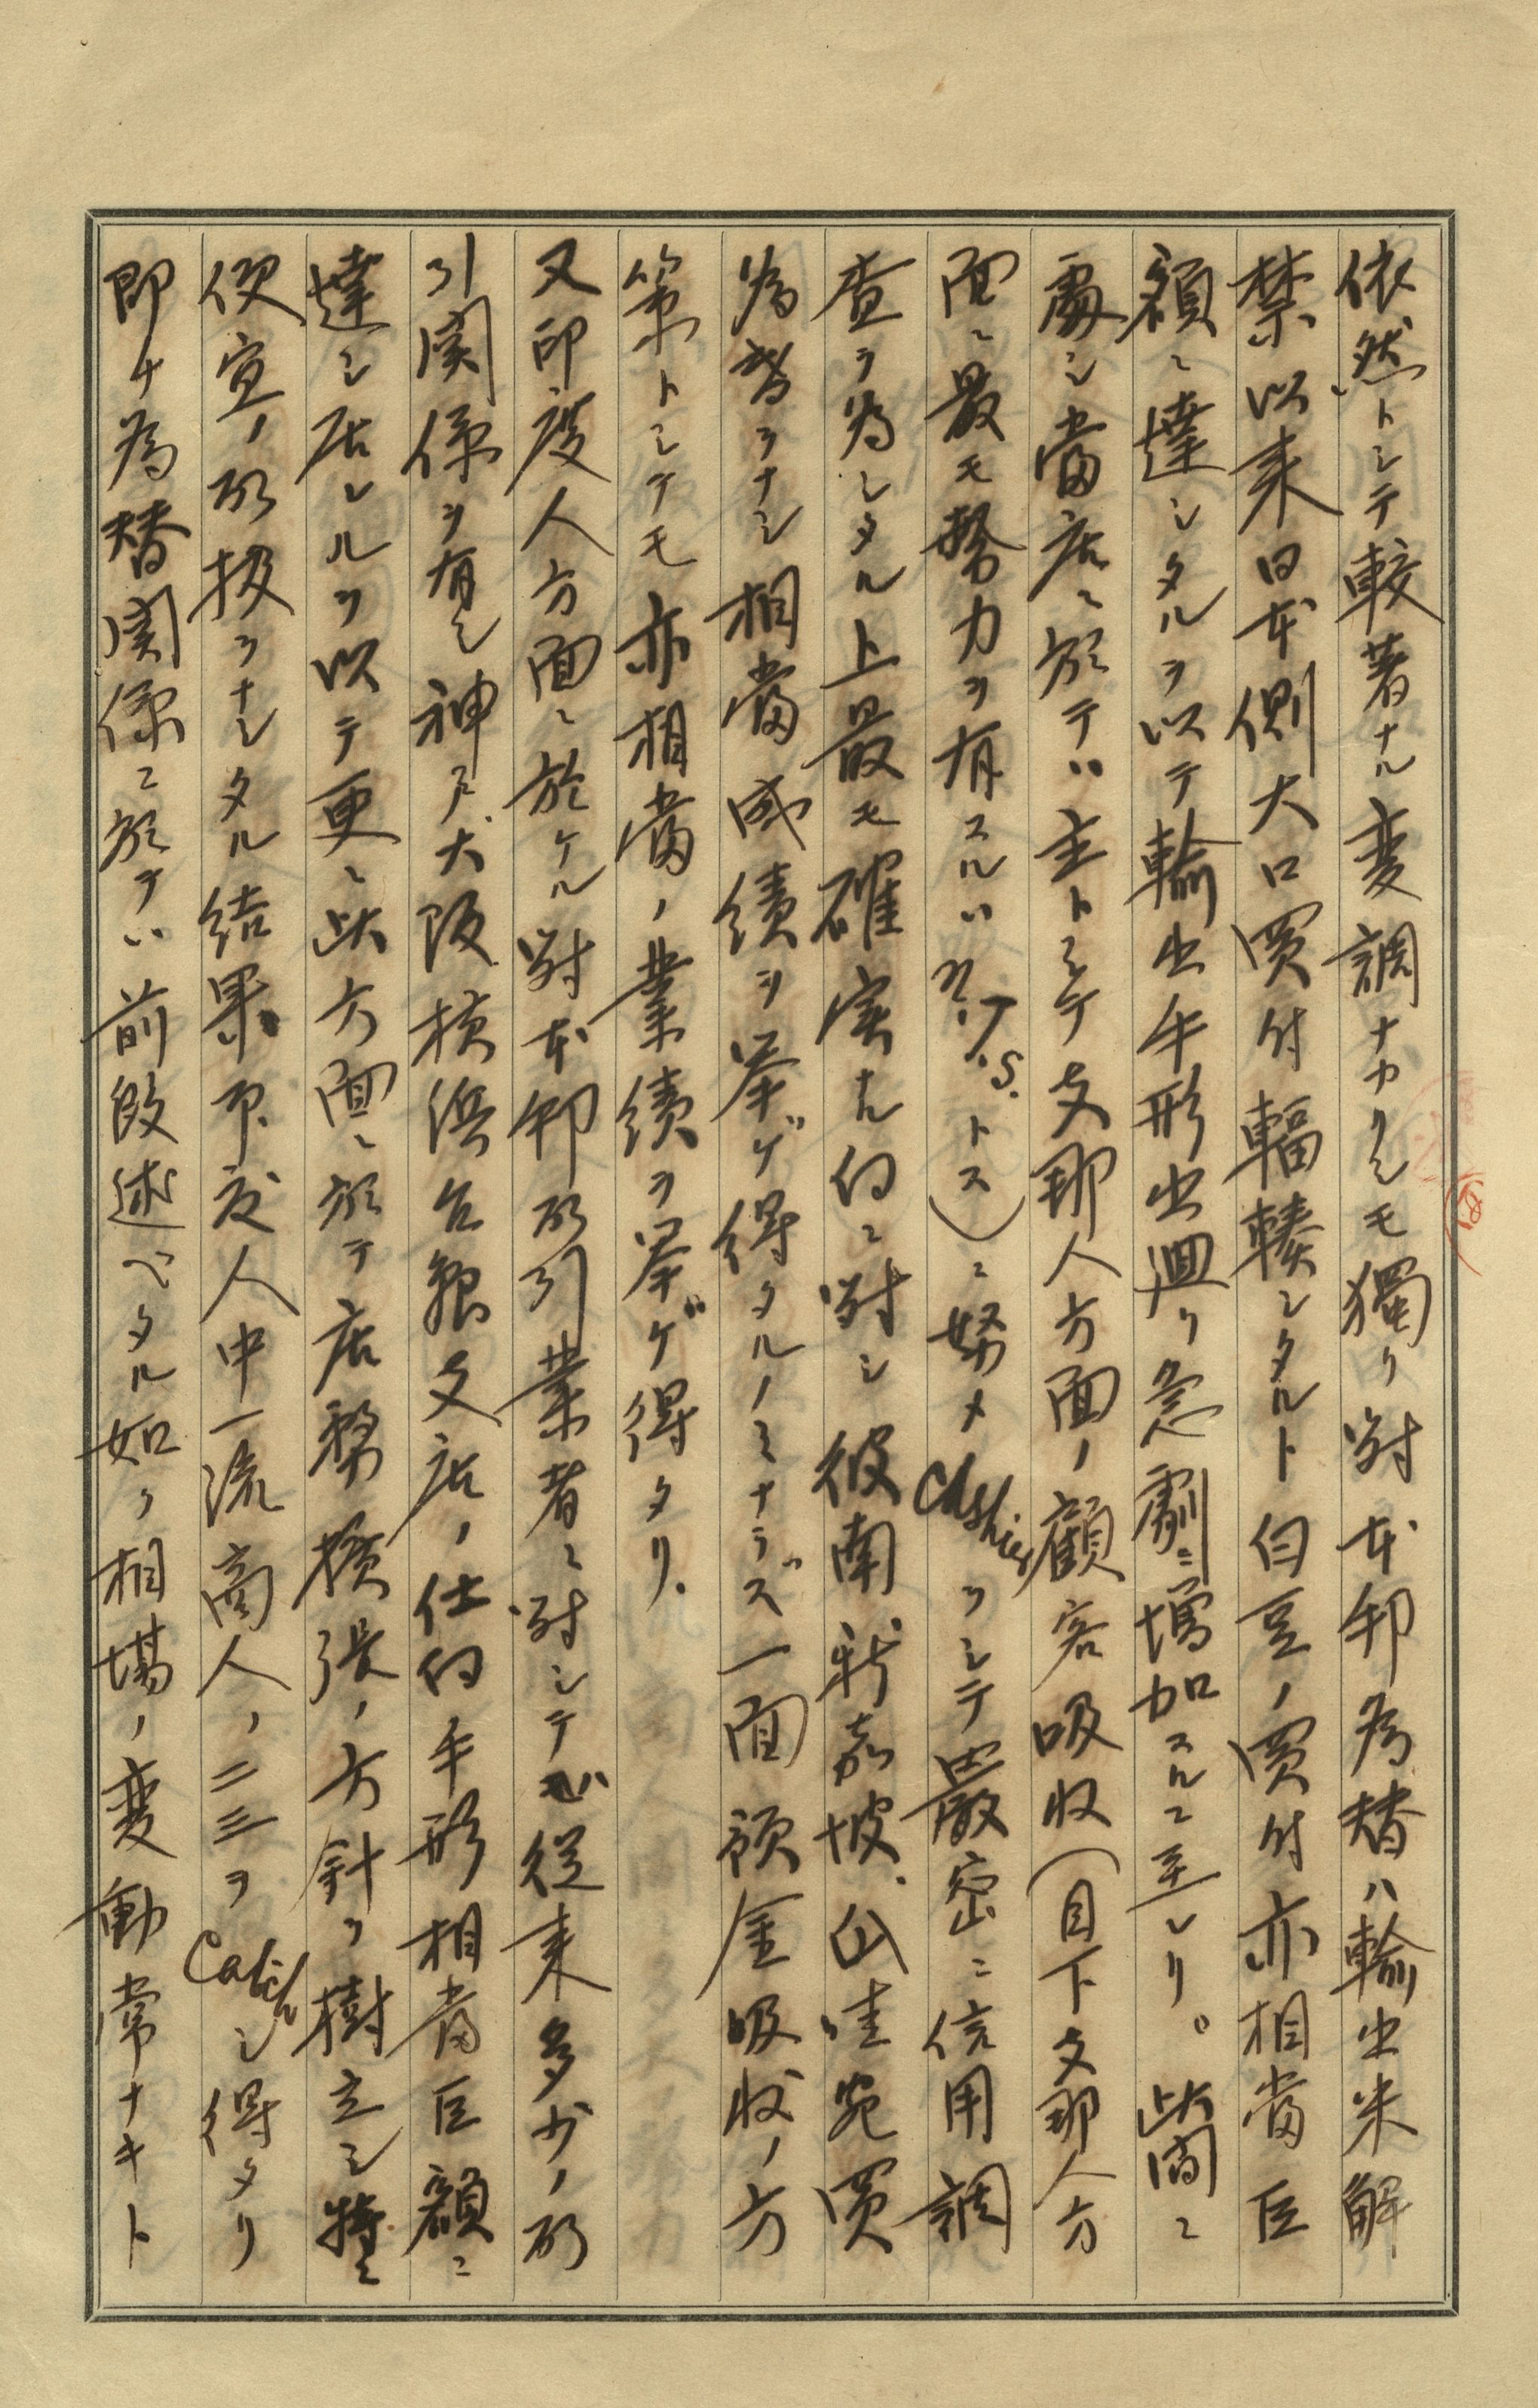 依然トシテ較著ナル変調ナカリシモ獨リ對本邦為替ハ輸出米解
禁以来日本側大口買付輻輳シタルト白豆ノ買付亦相當巨
額ニ達シタルヲ以テ輸出手形出廻リ急劇ニ増加スルニ至レリ。此間ニ
處シ當店ニ於テハ主トシテ支那人方面ノ顧客吸收（目下支那人方
面ニ最モ勢力ヲ有スルハ N.T.S.トス）ニ努メ Cashierヲシテ嚴密ニ信用調
査ヲ為シタル上最モ確実ナル向ニ對シ彼南新嘉坡、爪哇宛買
為替ヲナシ相當成績ヲ挙ゲ得タルノミナラズ一面預金吸收ノ方
策トシテモ亦相當ノ業績ヲ挙ゲ得タリ.
又印度人方面ニ於ケル對本邦取引業者ニ對シテモ従来多少ノ取
引関係ヲ有シ神戸、大阪横浜各親支店ノ仕向手形相當巨額ニ
達シ居レルヲ以テ更ニ此方面ニ於テ店務擴張ノ方針ヲ樹立シ特ニ
便宜ノ取扱ヲナシタル結果印度人中一流商人ノ二三ヲ Catchシ得タリ
即チ為替関係ニ於テハ前段述ベタル如ク相場ノ変動常ナキト